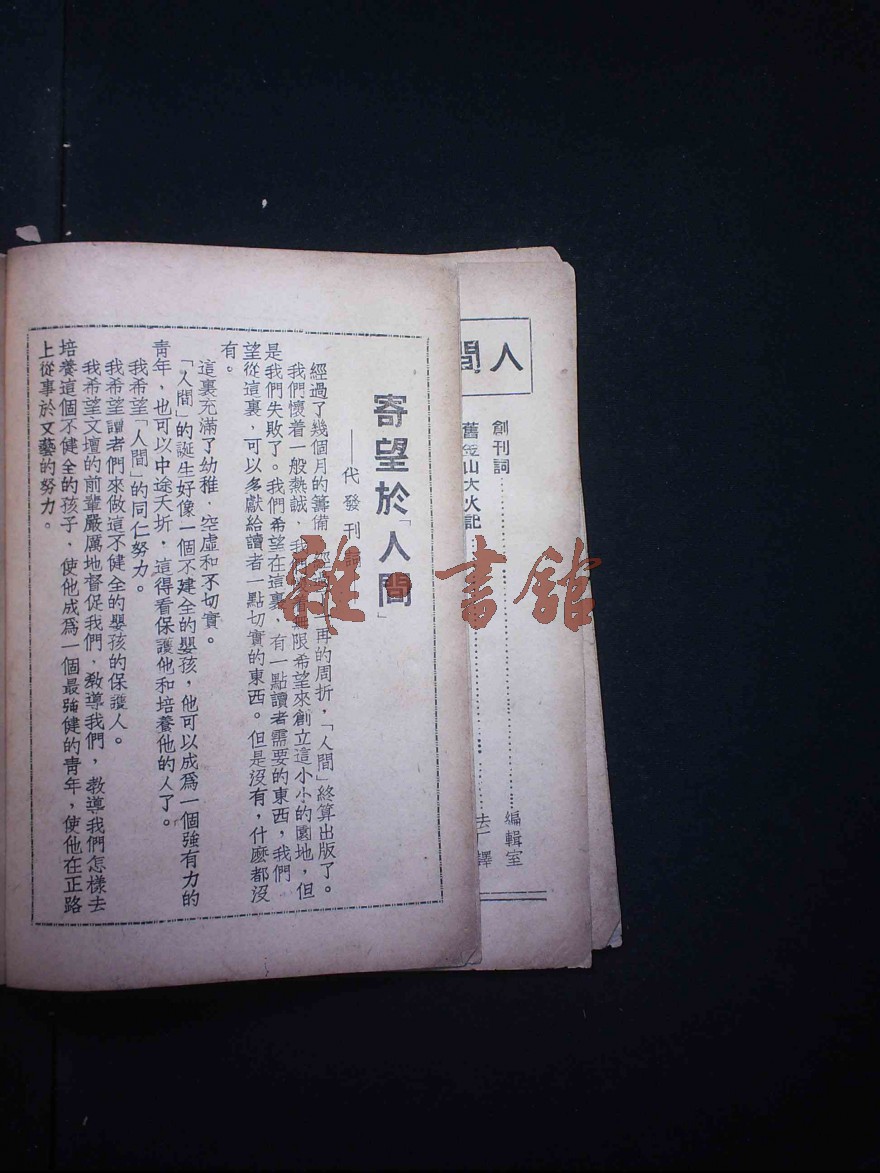 人間
創刊詞……編輯室
舊金山大火記……譯
寄望於「人間」
——代發刊
經過了幾個月的籌備,一再的周折,「人間」終算出版了。
我們懷着一般熱誠,我們無限希望來創立這小小的園地,但
是我們失敗了。我們希望在這裏,有一點讀者需要的東西,我們
望從這裏,可以多獻給讀者一點切實的東西。但是沒有,什麽都沒
有。
這裏充滿了幼稚,空虛和不切實。
「人間」的誕生好像一個不健全的嬰孩,他可以成爲一個強有力的
青年,也可以中途夭折,這得看保護他和培養他的人了。
我希望「人間」的同仁努力。
我希望讀者們來做這不健全的嬰孩的保護人。
我希望文壇的前輩嚴厲地督促我們,教導我們,教導我們怎樣去
培養這個不健全的孩子,使他成爲一個最強健的青年,使他在正路
上從事於文藝的努力。
雜·書館